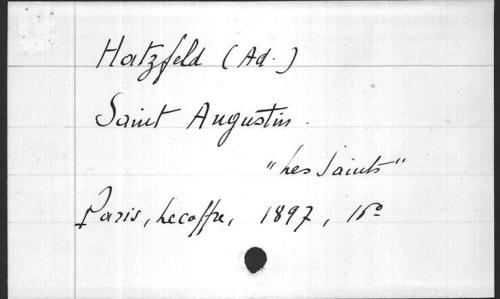 Hatzfeld (Ad.)
Saint Augustin.
"Les Saints"
Paris, Lecoffre, 1897, 16°